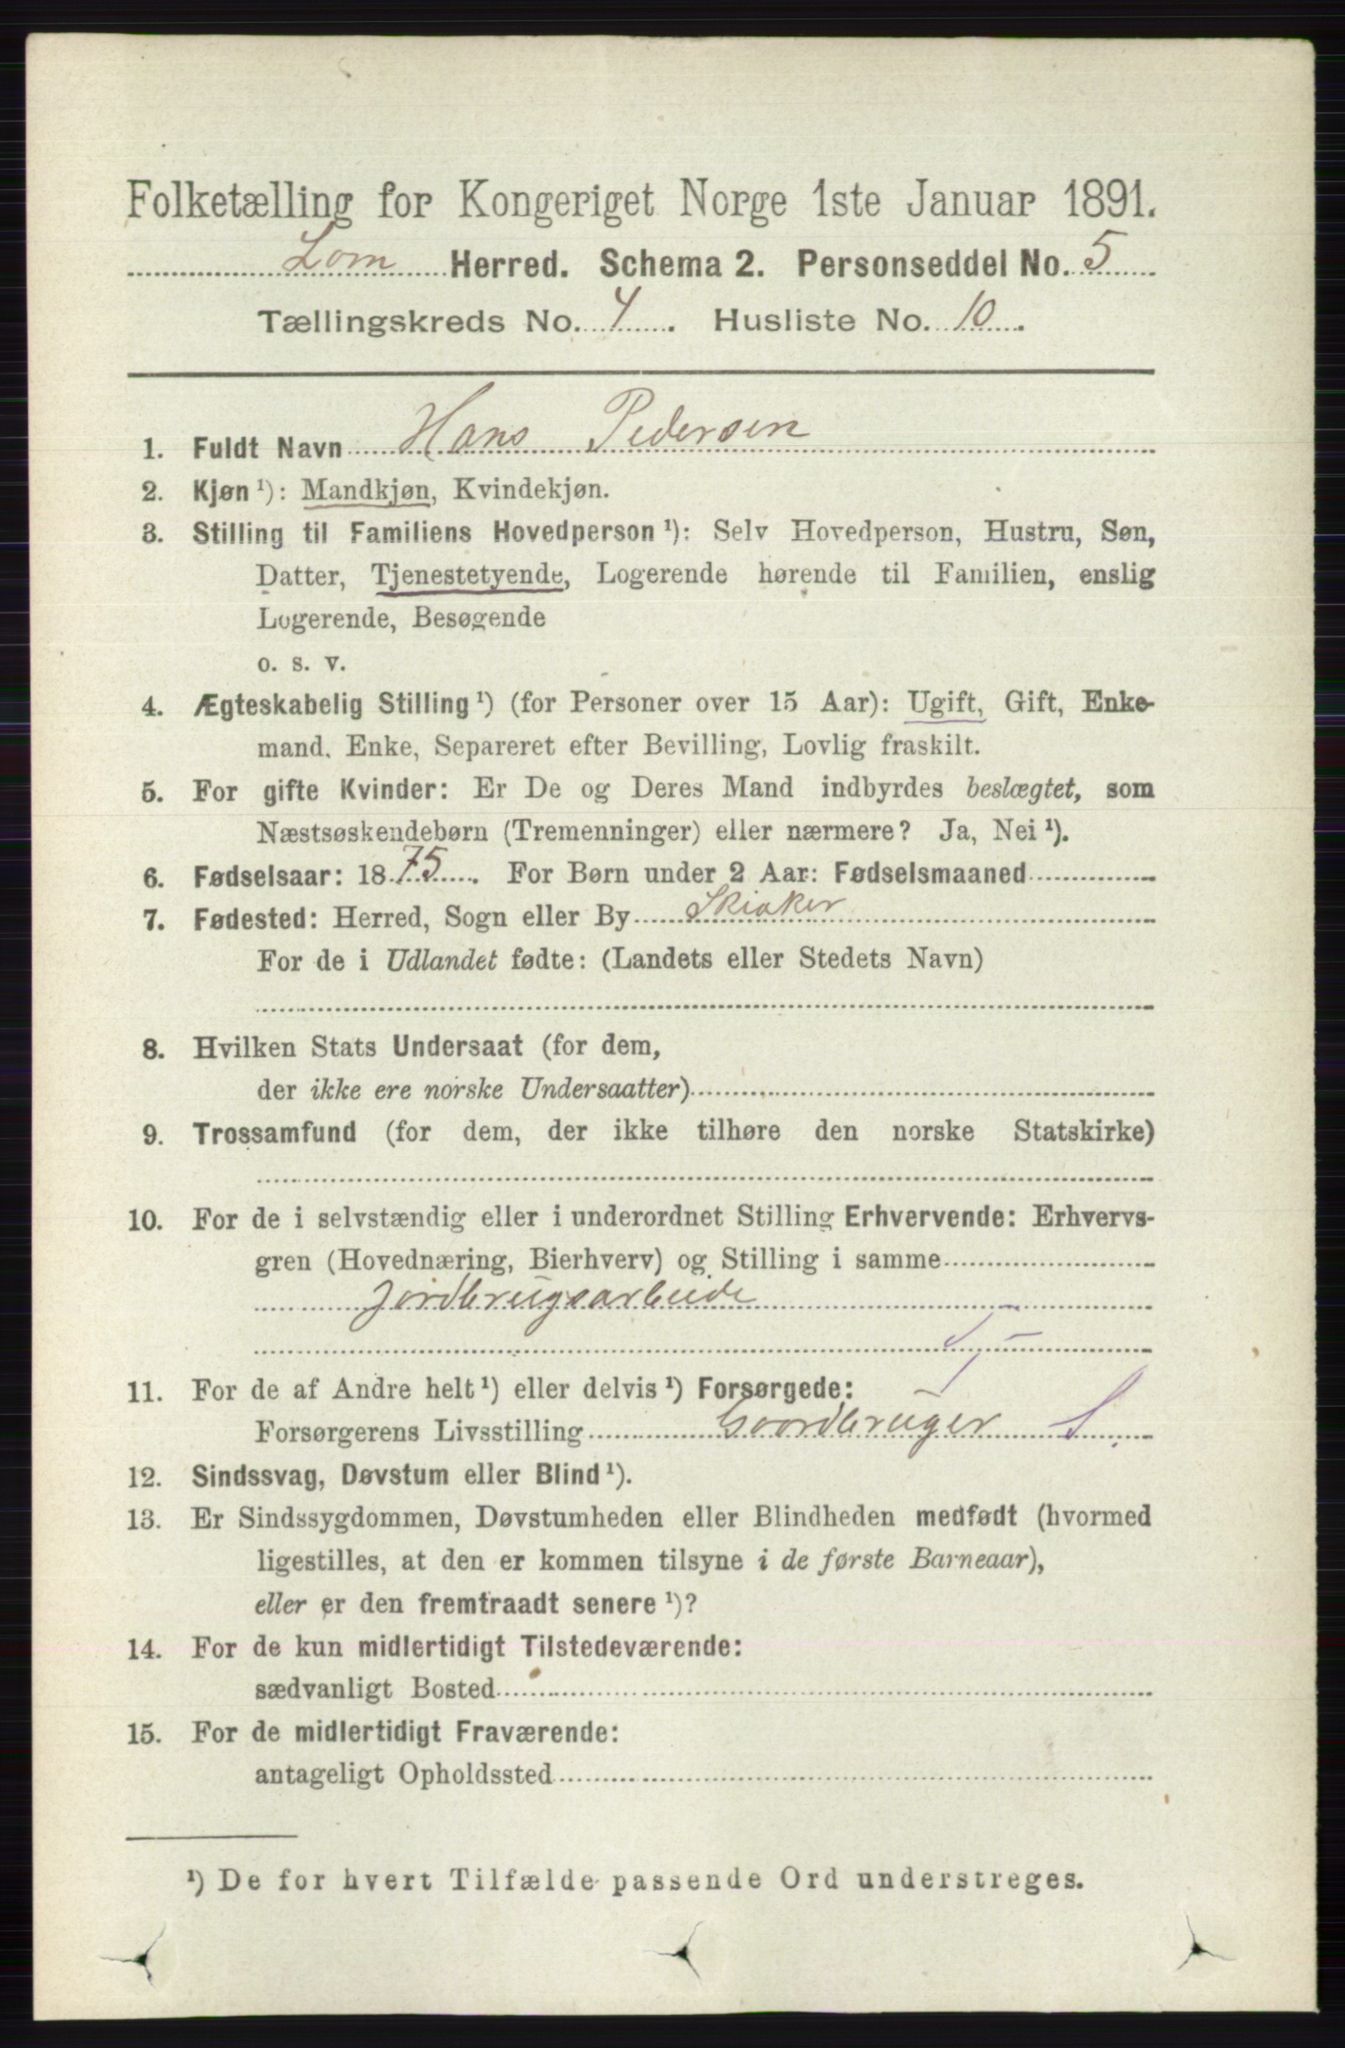 Folketælling for Kongeriget Norge 1ste Januar 1891.
Lom Herred. Schema 2. Personseddel No. 5
Tællingskreds No. 4. Husliste No. 10.
1. Fuldt Navn Hans Pedersen
2. Kjøn ¹): Mandkjøn, Kvindekjøn.
3. Stilling til Familiens Hovedperson ¹): Selv Hovedperson, Hustru, Søn,
Datter, Tjenestetyende, Logerende hørende til Familien, enslig
Logerende, Besøgende
o. s. v.
4. Ægteskabelig Stilling ¹) (for Personer over 15 Aar): Ugift, Gift, Enke-
mand, Enke, Separeret efter Bevilling, Lovlig fraskilt.
5. For gifte Kvinder: Er De og Deres Mand indbyrdes beslægtet, som
Næstsøskendebørn (Tremenninger) eller nærmere? Ja, Nei ¹).
6. Fødselsaar: 1875. For Børn under 2 Aar: Fødselsmaaned
7. Fødested: Herred, Sogn eller By Skiaker
For de i Udlandet fødte: (Landets eller Stedets Navn)
8. Hvilken Stats Undersaat (for dem,
der ikke ere norske Undersaatter)
9. Trossamfund (for dem, der ikke tilhøre den norske Statskirke)
10. For de i selvstændig eller i underordnet Stilling Erhvervende: Erhvervs-
gren (Hovednæring, Bierhverv) og Stilling i samme
Jordbrugsarbeide
11. For de af Andre helt ¹) eller delvis ¹) Forsørgede:
Forsørgerens Livsstilling Gaardbruger S.
12. Sindssvag, Døvstum eller Blind ¹).
13. Er Sindssygdommen, Døvstumheden eller Blindheden medfødt (hvormed
ligestilles, at den er kommen tilsyne i de første Barneaar),
eller er den fremtraadt senere ¹)?
14. For de kun midlertidigt Tilstedeværende:
sædvanligt Bosted
15. For de midlertidigt Fraværende:
antageligt Opholdssted
¹) De for hvert Tilfælde passende Ord understreges.